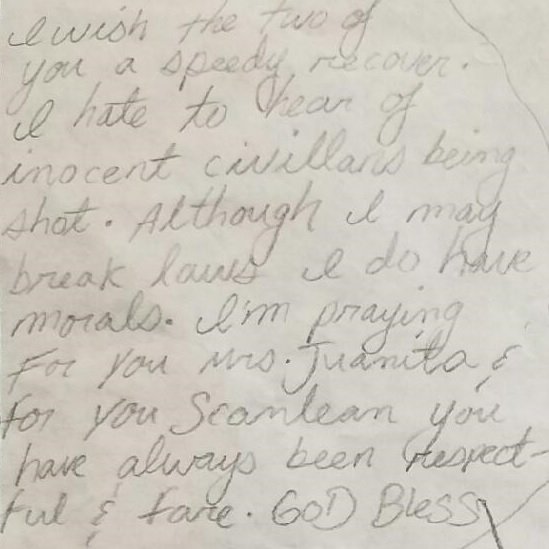 I wish the two of
you a speedy recover.
I hate to hear of
inocent civillans being
shot. Although I may
break laws I do have
morals. I'm praying
For you Mrs. Juanita &
for you Scanlean you
have always been respect-
ful & fare. GOD Bless